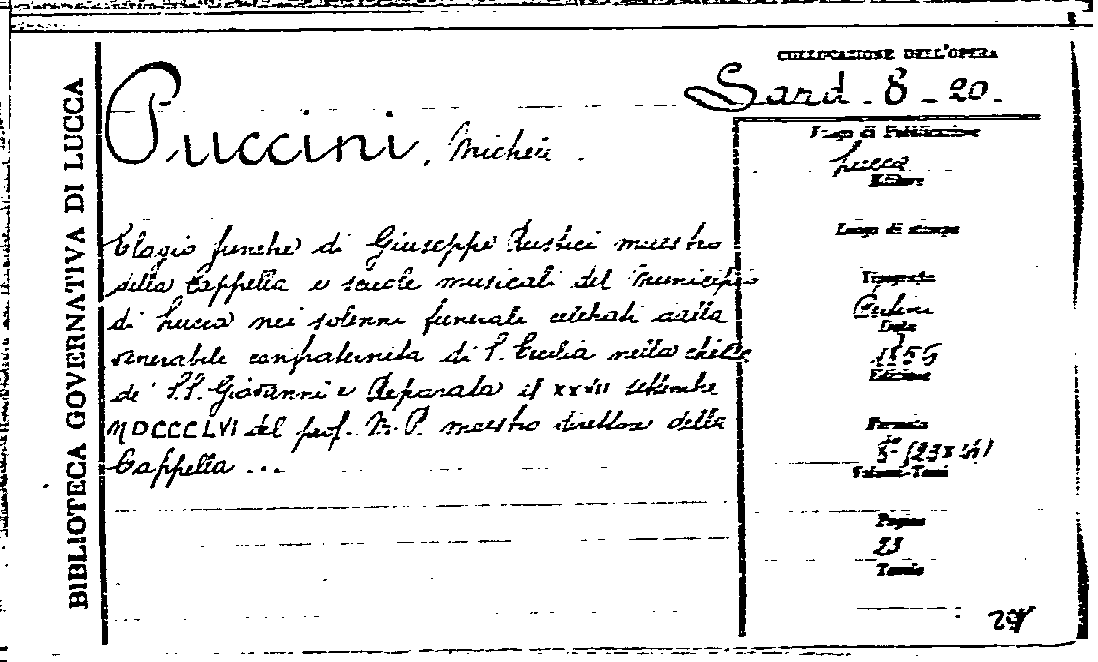 BIBLIOTECA GOVERNATIVA DI LUCCA
COLLOCAZIONE DELL'OPERA
Sard. 8 - 20.
Puccini, Michele.
Elogio funebre di Giuseppe Rustici maestro
della Cappella e scuole musicali del Municipio
di Lucca nei solenni funerali celebrati dalla
venerabile confraternita di S. Cecilia nella chiesa
de' S.S. Giovanni e Reparata il XXVII settembre
MDCCCLVI del prof. M. P. maestro direttore della
Cappella ...
Luogo di Pubblicazione
Lucca
Editore
Luogo di stampa
Tipografo
Data
1856
Edizione
Formato
8°
Volumi-Tomi
Pagine
23
Tavole